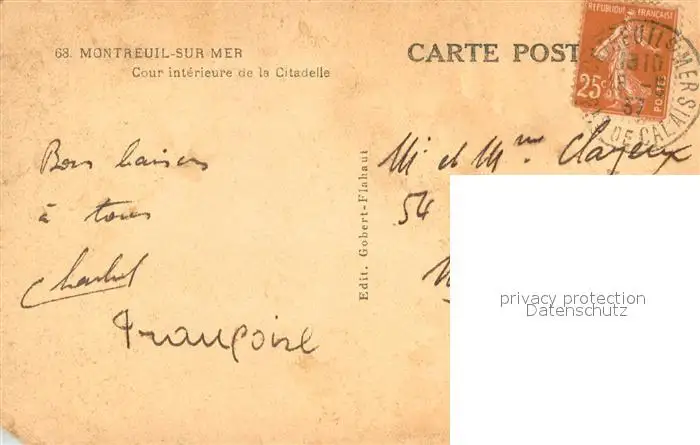 68. MONTREUIL-SUR MER
Cour intérieure de la Citadelle
CARTE POST
REPUBLIQUE FRANÇAISE
25c
POSTES
DE CALAIS
Bons baisers
à tous
Françoise
Edit. Gobert-Flahaut
Mr et Mme Clayeux
54
privacy protection
Datenschutz